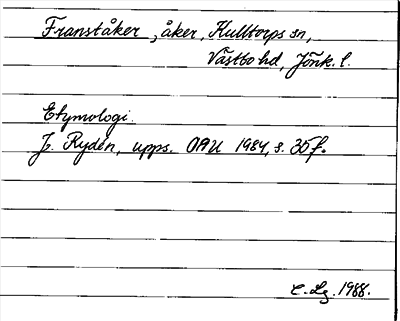 Franståker, åker, Hulltorps sn,
Västbo hd, Jönk. l.
Etymologi.
J. Rydén, upps. OAU 1984, s. 35f.
C. Lg. 1988.